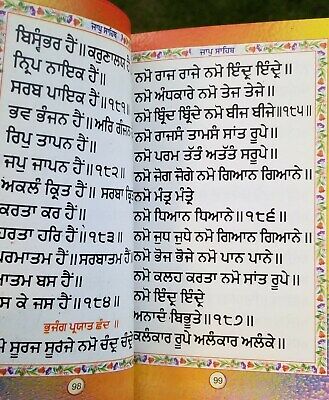 ਜਾਪੁ ਸਾਹਿਬ
ਬਿਸ੍ਵੰਭਰ ਹੈਂ॥ ਕਰੁਣਾਲਯ
ਨ੍ਰਿਪ ਨਾਇਕ ਹੈਂ॥
ਸਰਬ ਪਾਇਕ ਹੈਂ॥੧੮੧॥
ਭਵ ਭੰਜਨ ਹੈਂ॥ ਅਰਿ ਗੰਜਨ
ਰਿਪੁ ਤਾਪਨ ਹੈਂ॥
ਜਪੁ ਜਾਪਨ ਹੈਂ॥੧੮੨॥
ਅਕਲੰ ਕ੍ਰਿਤ ਹੈਂ॥ ਸਰਬਾ ਕ੍ਰਿਤ
ਕਰਤਾ ਕਰ ਹੈਂ॥
ਹਰਤਾ ਹਰਿ ਹੈਂ॥੧੮੩॥
ਪਰਮਾਤਮ ਹੈਂ॥ ਸਰਬਾਤਮ ਹੈਂ॥
ਆਤਮ ਬਸ ਹੈਂ॥
ਜਸ ਕੇ ਜਸ ਹੈਂ॥੧੮੪॥
ਭੁਜੰਗ ਪ੍ਰਯਾਤ ਛੰਦ ॥
ਨਮੋ ਸੂਰਜ ਸੂਰਜੇ ਨਮੋ ਚੰਦ੍ਰ ਚੰਦ੍ਰੇ॥
98
ਜਾਪੁ ਸਾਹਿਬ
ਨਮੋ ਰਾਜ ਰਾਜੇ ਨਮੋ ਇੰਦ੍ਰ ਇੰਦ੍ਰੇ॥
ਨਮੋ ਅੰਧਕਾਰੇ ਨਮੋ ਤੇਜ ਤੇਜੇ॥
ਨਮੋ ਬ੍ਰਿੰਦ ਬ੍ਰਿੰਦੇ ਨਮੋ ਬੀਜ ਬੀਜੇ॥੧੮੫॥
ਨਮੋ ਰਾਜਸੰ ਤਾਮਸੰ ਸਾਂਤ ਰੂਪੇ॥
ਨਮੋ ਪਰਮ ਤੱਤੰ ਅਤੱਤੰ ਸਰੂਪੇ॥
ਨਮੋ ਜੋਗ ਜੋਗੇ ਨਮੋ ਗਿਆਨ ਗਿਆਨੇ॥
ਨਮੋ ਮੰਤ੍ਰ ਮੰਤ੍ਰੇ
ਨਮੋ ਧਿਆਨ ਧਿਆਨੇ॥੧੮੬॥
ਨਮੋ ਜੁਧ ਜੁਧੇ ਨਮੋ ਗਿਆਨ ਗਿਆਨੇ॥
ਨਮੋ ਭੋਜ ਭੋਜੇ ਨਮੋ ਪਾਨ ਪਾਨੇ॥
ਨਮੋ ਕਲਹ ਕਰਤਾ ਨਮੋ ਸਾਂਤ ਰੂਪੇ॥
ਨਮੋ ਇੰਦ੍ਰ ਇੰਦ੍ਰੇ
ਅਨਾਦੰ ਬਿਭੂਤੇ॥੧੮੭॥
ਕਲੰਕਾਰ ਰੂਪੇ ਅਲੰਕਾਰ ਅਲੰਕੇ॥
99